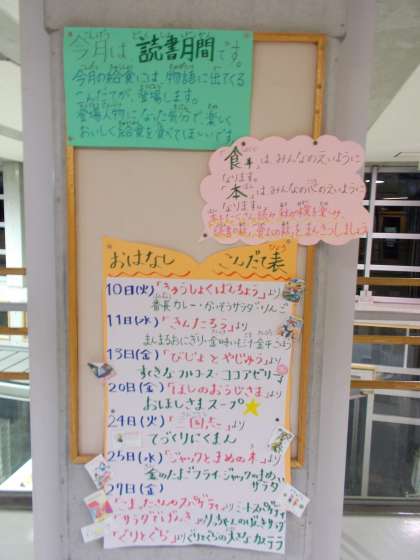 今月は読書月間です。
今月の給食には、物語に出てくる
こんだてが、登場します。
登場人物になった気分で楽しく
おいしく給食を食べてほしいです
「食事」は みんなのえいように
なります。
「本」は みんなの心のえいように
なります。
おはなし こんだて表
10日(火)「きゅうしょくばんちょう」より
番長カレー・かいそうサラダ・りんご
11日(水)「きんたろう」より
まんまるおにぎり・金時いも
13日(金)「びじょとやじゅう」より
すてきなフルコース・ココアゼリー
20日(金)「ほしのおうじさま」より
おほしさまスープ
24日(火)「三国志」より
てづくりにくまん
25日(水)「ジャックとまめの木」より
金のたまごフライ・ジャックのまめいりサラダ
27日(金)
「サラダでげんき」より りっちゃんのげんきサラダ
「ぐりとぐら」より ぐりとぐらの大きなカステラ